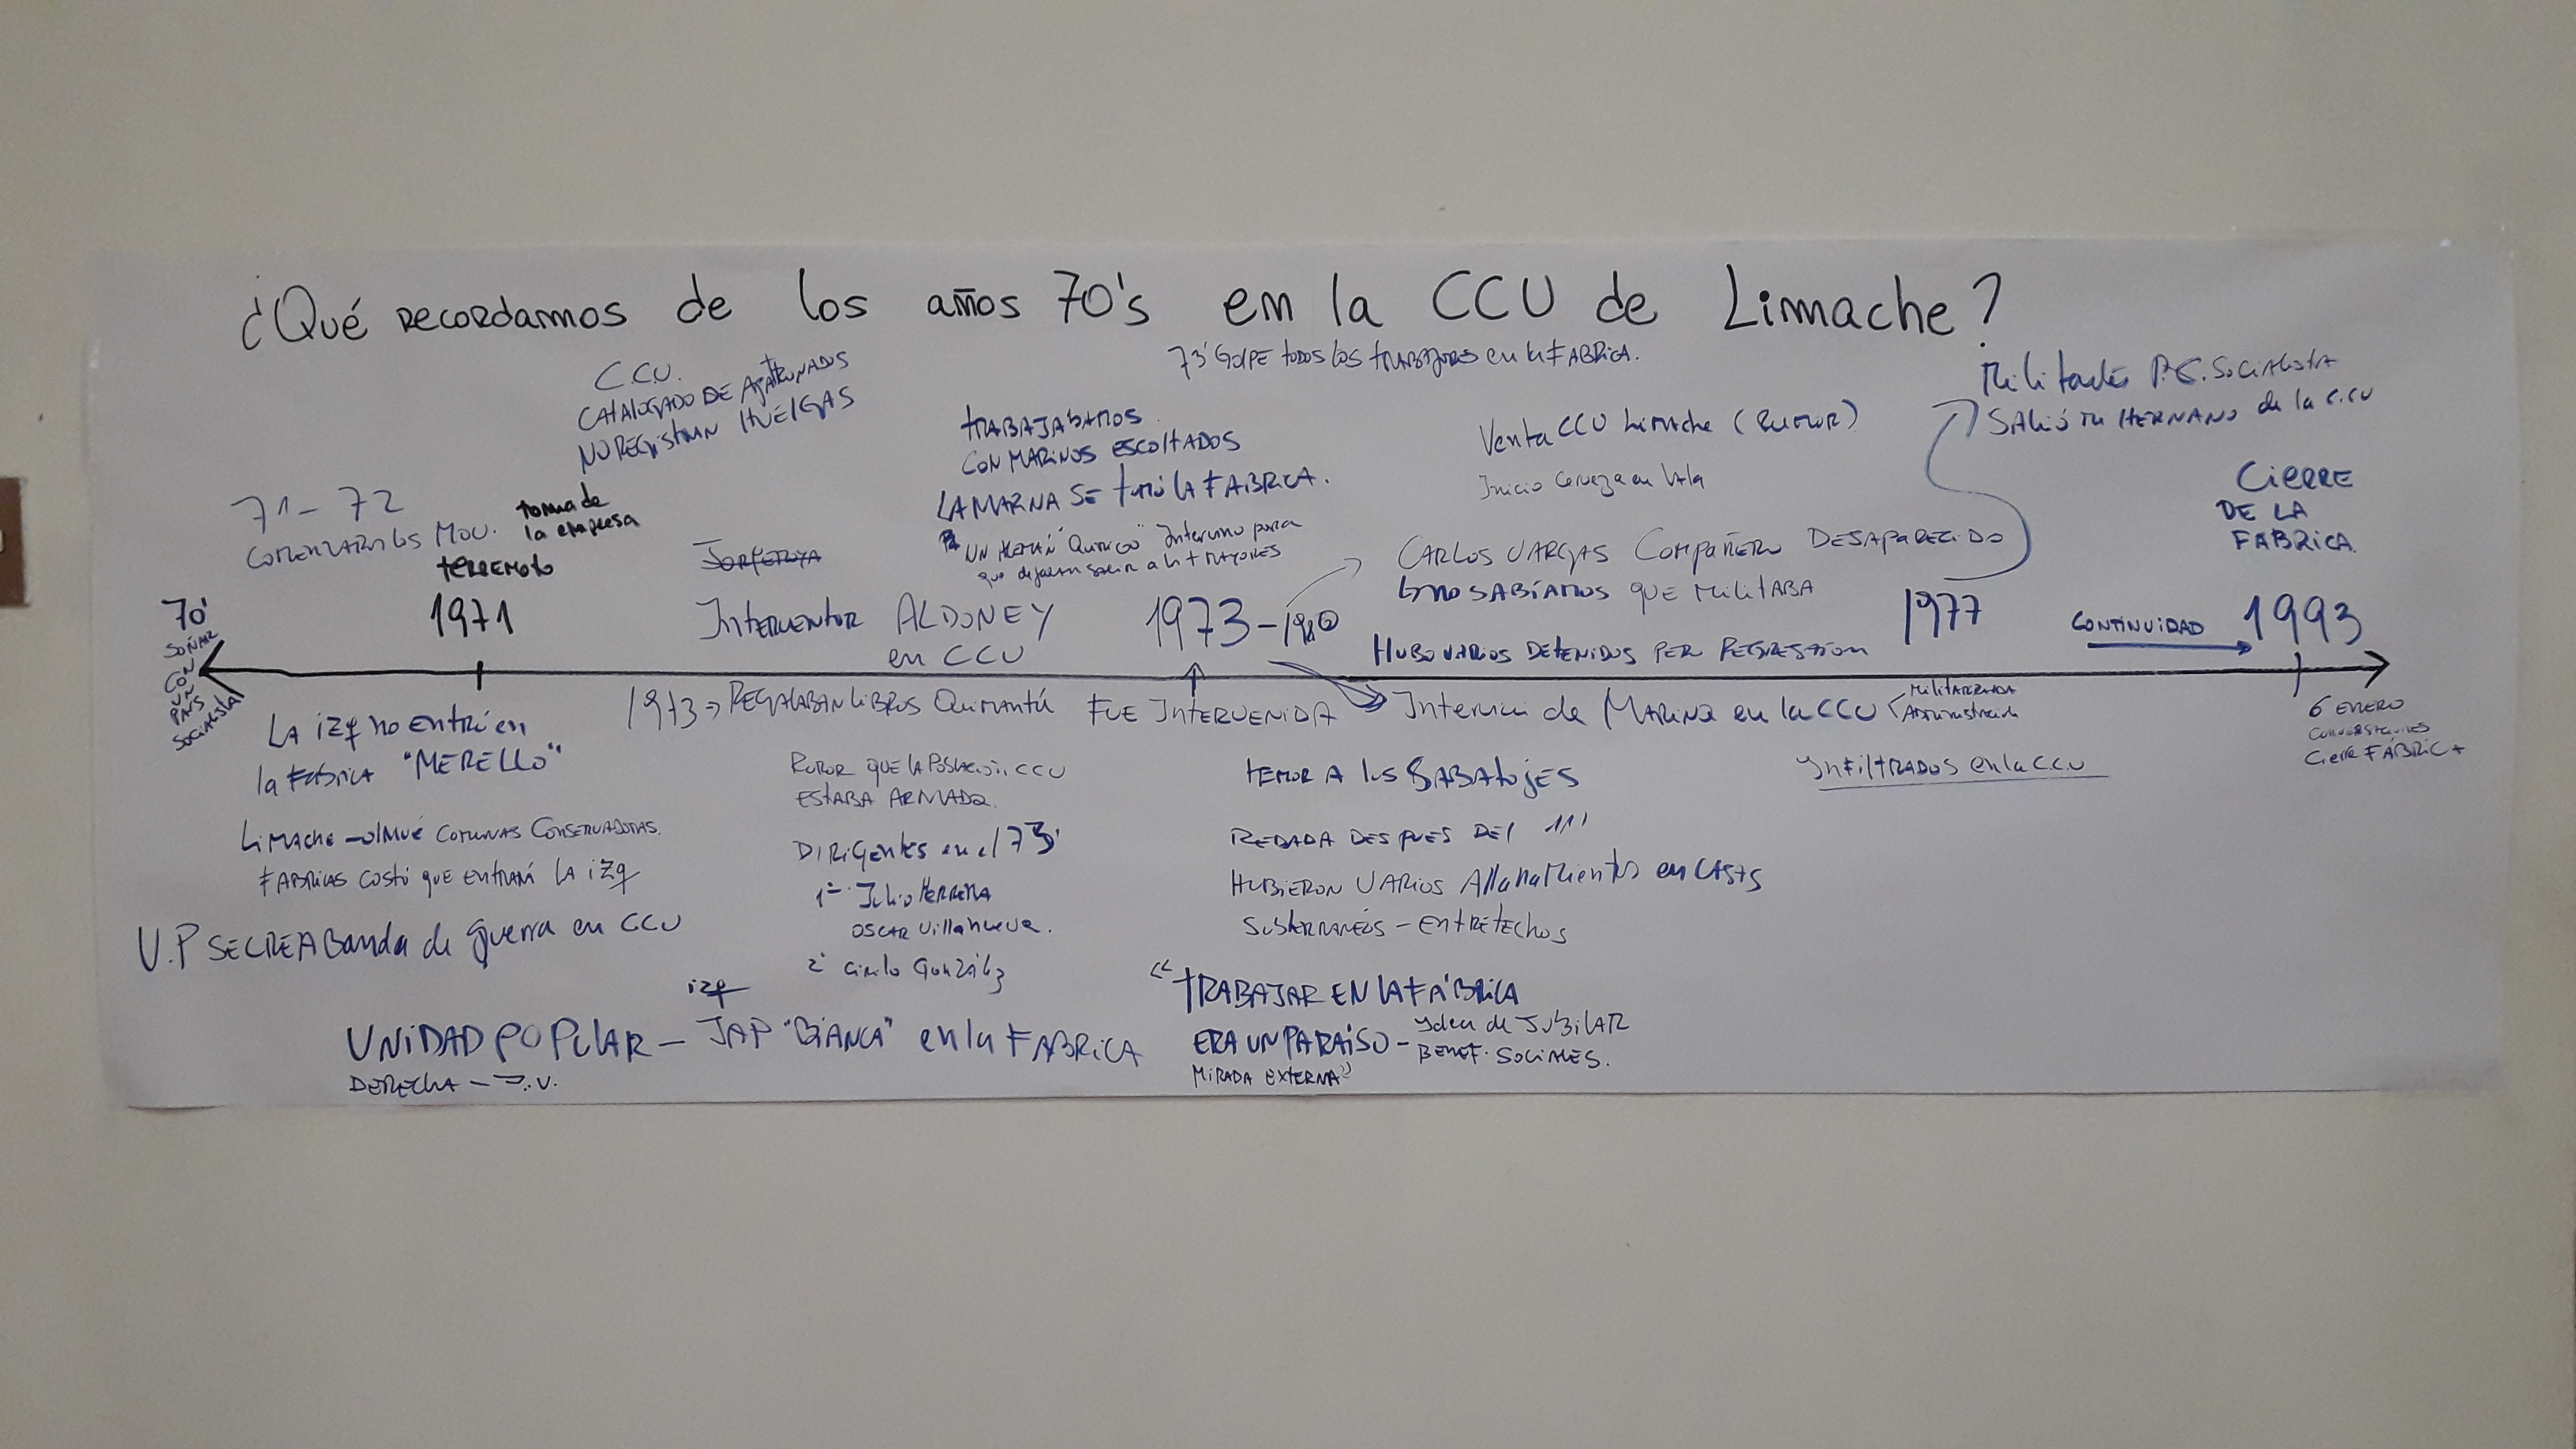 ¿Qué recordamos de los años 70's en la CCU de Limache?
73' GOLPE todos los trabajadores en la FABRICA.
C.C.U.
CATALOGADO DE APATRONADOS
NO REGISTRAN HUELGAS
71 - 72
COMENZARON LOS MOV.
toma de
la empresa
terremoto
TRABAJABAMOS
CON MARINOS ESCOLTADOS
LA MARINA SE tomó LA FABRICA.
UN ALEMÁN "QUIMICO" Intervino para
que dejaran salir a los + MAYORES
Venta CCU Limache (RUMOR)
Inicio Cerveza en lata
Militante P.S. Socialista
SALIÓ MI HERMANO de la C.CU
CIERRE
DE LA
FABRICA.
CARLOS VARGAS COMPAÑERO DESAPARECIDO
NO SABÍAMOS QUE MILITABA
HUBO VARIOS DETENIDOS
70'
SOÑAR
CON
UN
PAÍS
SOCIALISTA
1971
INTERVENTOR ALDONEY
en CCU
1973 - 1980
1977
CONTINUIDAD
1993
1973 → REGALABAN LIBROS Quimantú
FUE INTERVENIDA
de MARINA en la CCU
MILITARIZADA
Administración
6 ENERO
CONVERSACIONES
Cierre FÁBRICA
LA izq no entró en
la FÁBRICA "MERELLO"
LIMACHE - OLMUÉ COMUNAS CONSERVADORAS.
FABRICAS COSTÓ QUE ENTRARÁ LA izq
U.P SE CREA Banda de guerra en CCU
RUMOR QUE LA POBLACIÓN CCU
ESTABA ARMADA.
DIRIGENTES en el 73'
1º Julio HERRERA
OSCAR Villanueva.
2º Cirilo González
TEMOR A los SABATOJES
REDADA DESPUES DEL 11'
HUBIERON VARIOS Allanamientos en CASAS
SUBTERRANEOS - ENTRETECHOS
INFILTRADOS en la C.C.U
izq
UNIDAD POPULAR - JAP "BIANCA" en la FABRICA
DERECHA -
"TRABAJAR EN LA FÁBRICA
ERA UN PARAÍSO - Idea de JUBILAR
BENEF. SOCIALES.
MIRADA EXTERNA"